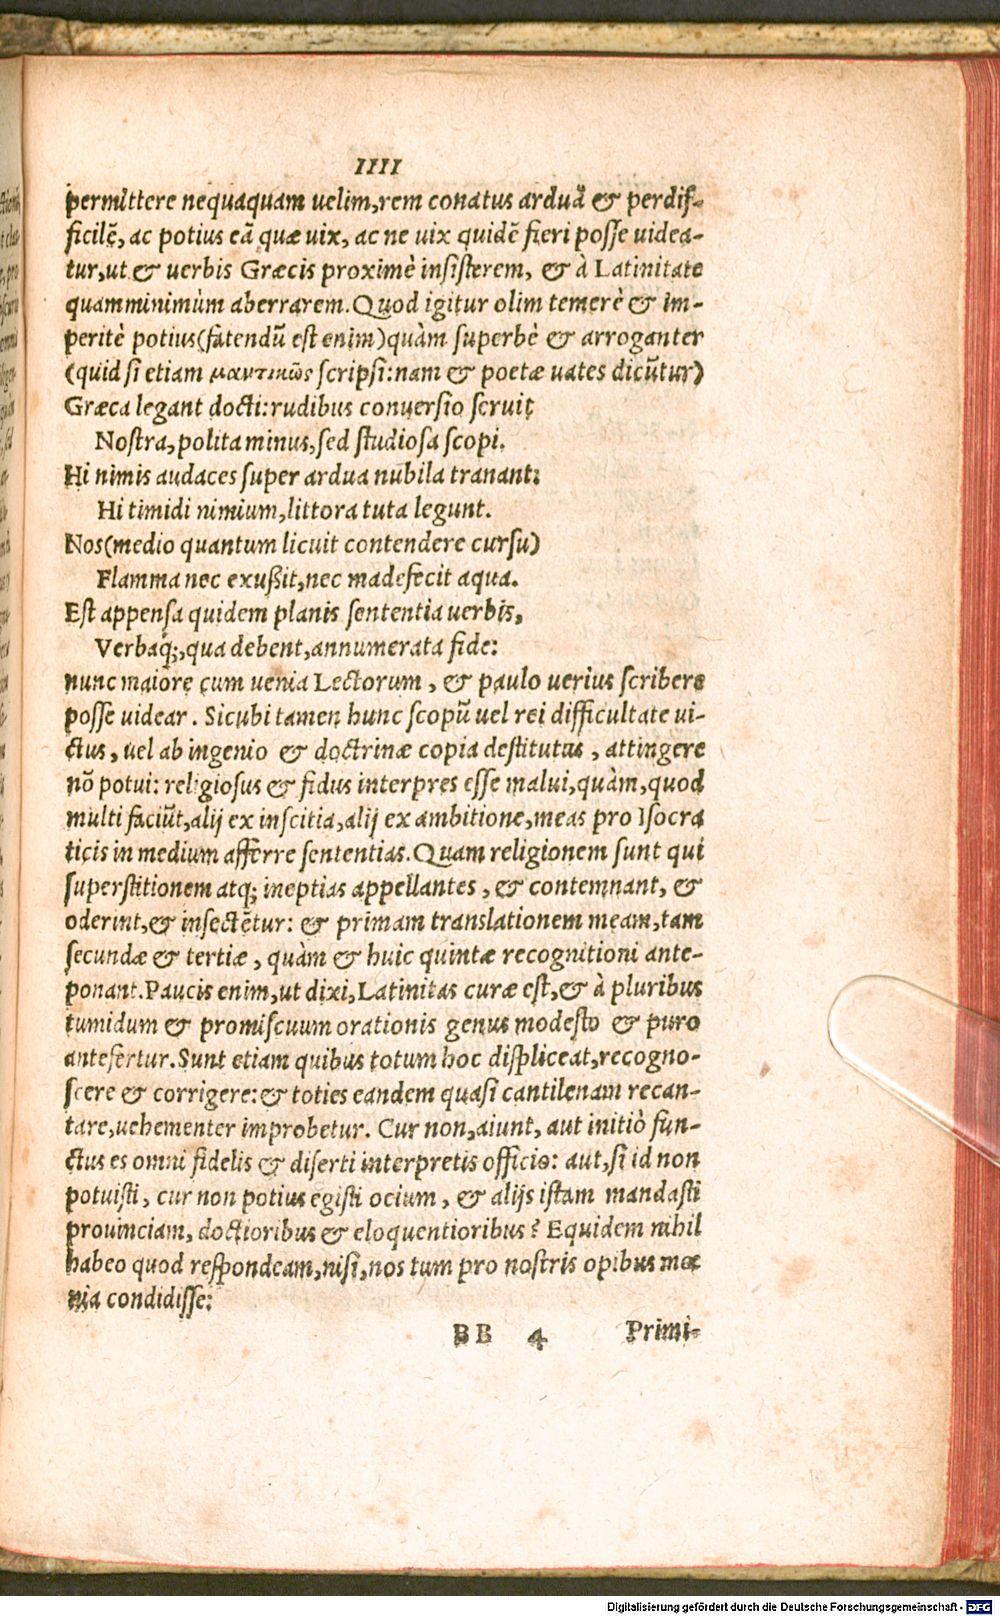 IIII
permittere nequaquam uelim, rem conatus arduã & perdif-
ficilẽ, ac potius eã quæ uix, ac ne uix quidẽ fieri posse uidea-
tur, ut & uerbis Græcis proximè insisterem, & à Latinitate
quamminimùm aberrarem. Quod igitur olim temerè & im-
peritè potius (fatendũ est enim) quàm superbè & arroganter
(quid si etiam μαντικῶς scripsi: nam & poetæ uates dicũtur)
Græca legant docti: rudibus conuersio seruit
Nostra, polita minus, sed studiosa scopi.
Hi nimis audaces super ardua nubila tranant:
Hi timidi nimium, littora tuta legunt.
Nos (medio quantum licuit contendere cursu)
Flamma nec exußit, nec madefecit aqua.
Est appensa quidem planis sententia uerbis,
Verbaq;, qua debent, annumerata fide:
nunc maiore cum uenia Lectorum, & paulo uerius scribere
posse uidear. Sicubi tamen hunc scopũ uel rei difficultate ui-
ctus, uel ab ingenio & doctrinæ copia destitutus, attingere
nõ potui: religiosus & fidus interpres esse malui, quàm, quod
multi faciũt, alij ex inscitia, alij ex ambitione, meas pro Isocra
ticis in medium afferre sententias. Quam religionem sunt qui
superstitionem atq; ineptias appellantes, & contemnant, &
oderint, & insectẽtur: & primam translationem meam, tam
secundæ & tertiæ, quàm & huic quintæ recognitioni ante-
ponant. Paucis enim, ut dixi, Latinitas curæ est, & à pluribus
tumidum & promiscuum orationis genus modesto & puro
antefertur. Sunt etiam quibus totum hoc displiceat, recogno-
scere & corrigere: & toties eandem quasi cantilenam recan-
tare, uehementer improbetur. Cur non, aiunt, aut initiò fun-
ctus es omni fidelis & diserti interpretis officio: aut, si id non
potuisti, cur non potius egisti ocium, & alijs istam mandasti
prouinciam, doctioribus & eloquentioribus? Equidem nihil
habeo quod respondeam, nisi, nos tum pro nostris opibus mœ
nia condidisse:
BB 4 Primi-
Digitalisierung gefördert durch die Deutsche Forschungsgemeinschaft - DFG